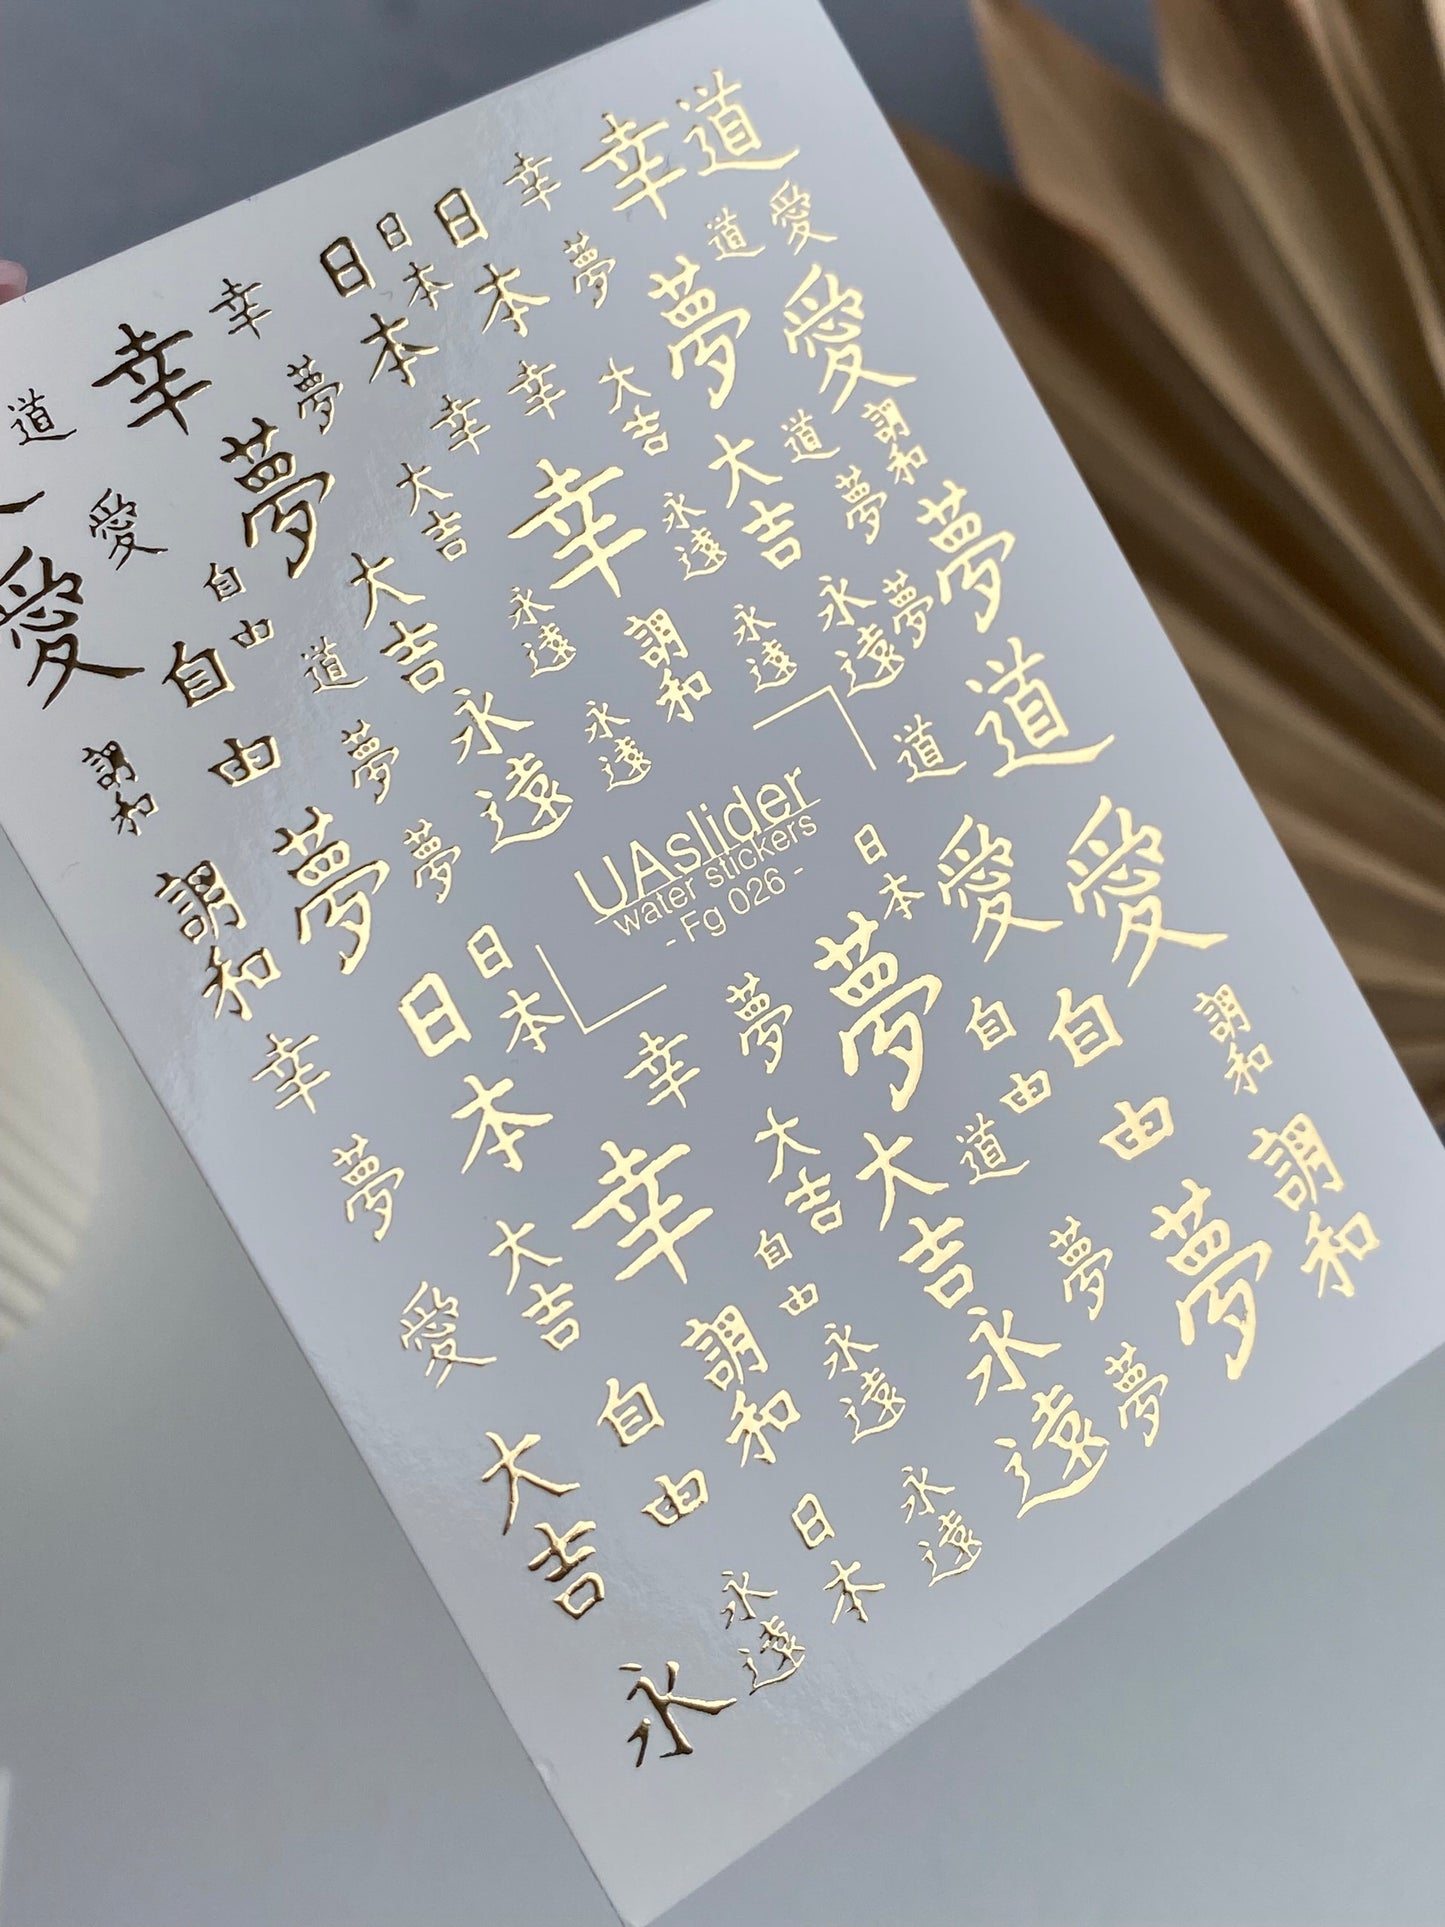 幸
道
幸
日
本
日
本
日
本
幸
夢
道
愛
幸
道
夢
夢
愛
夢
幸
幸
大吉
大吉
大吉
道
調和
愛
愛
幸
永遠
夢
夢
自由
大吉
永遠
調和
永遠
永遠
夢
自由
道
永遠
永遠
道
道
調和
夢
夢
夢
UAslider
water stickers
- Fg 026 -
日本
愛
愛
調和
日本
日本
夢
夢
自由
自由
調和
幸
幸
大吉
大吉
道
調和
夢
大吉
幸
自由
夢
夢
愛
調和
永遠
永遠
夢
自由
大吉
日本
永遠
永遠
永